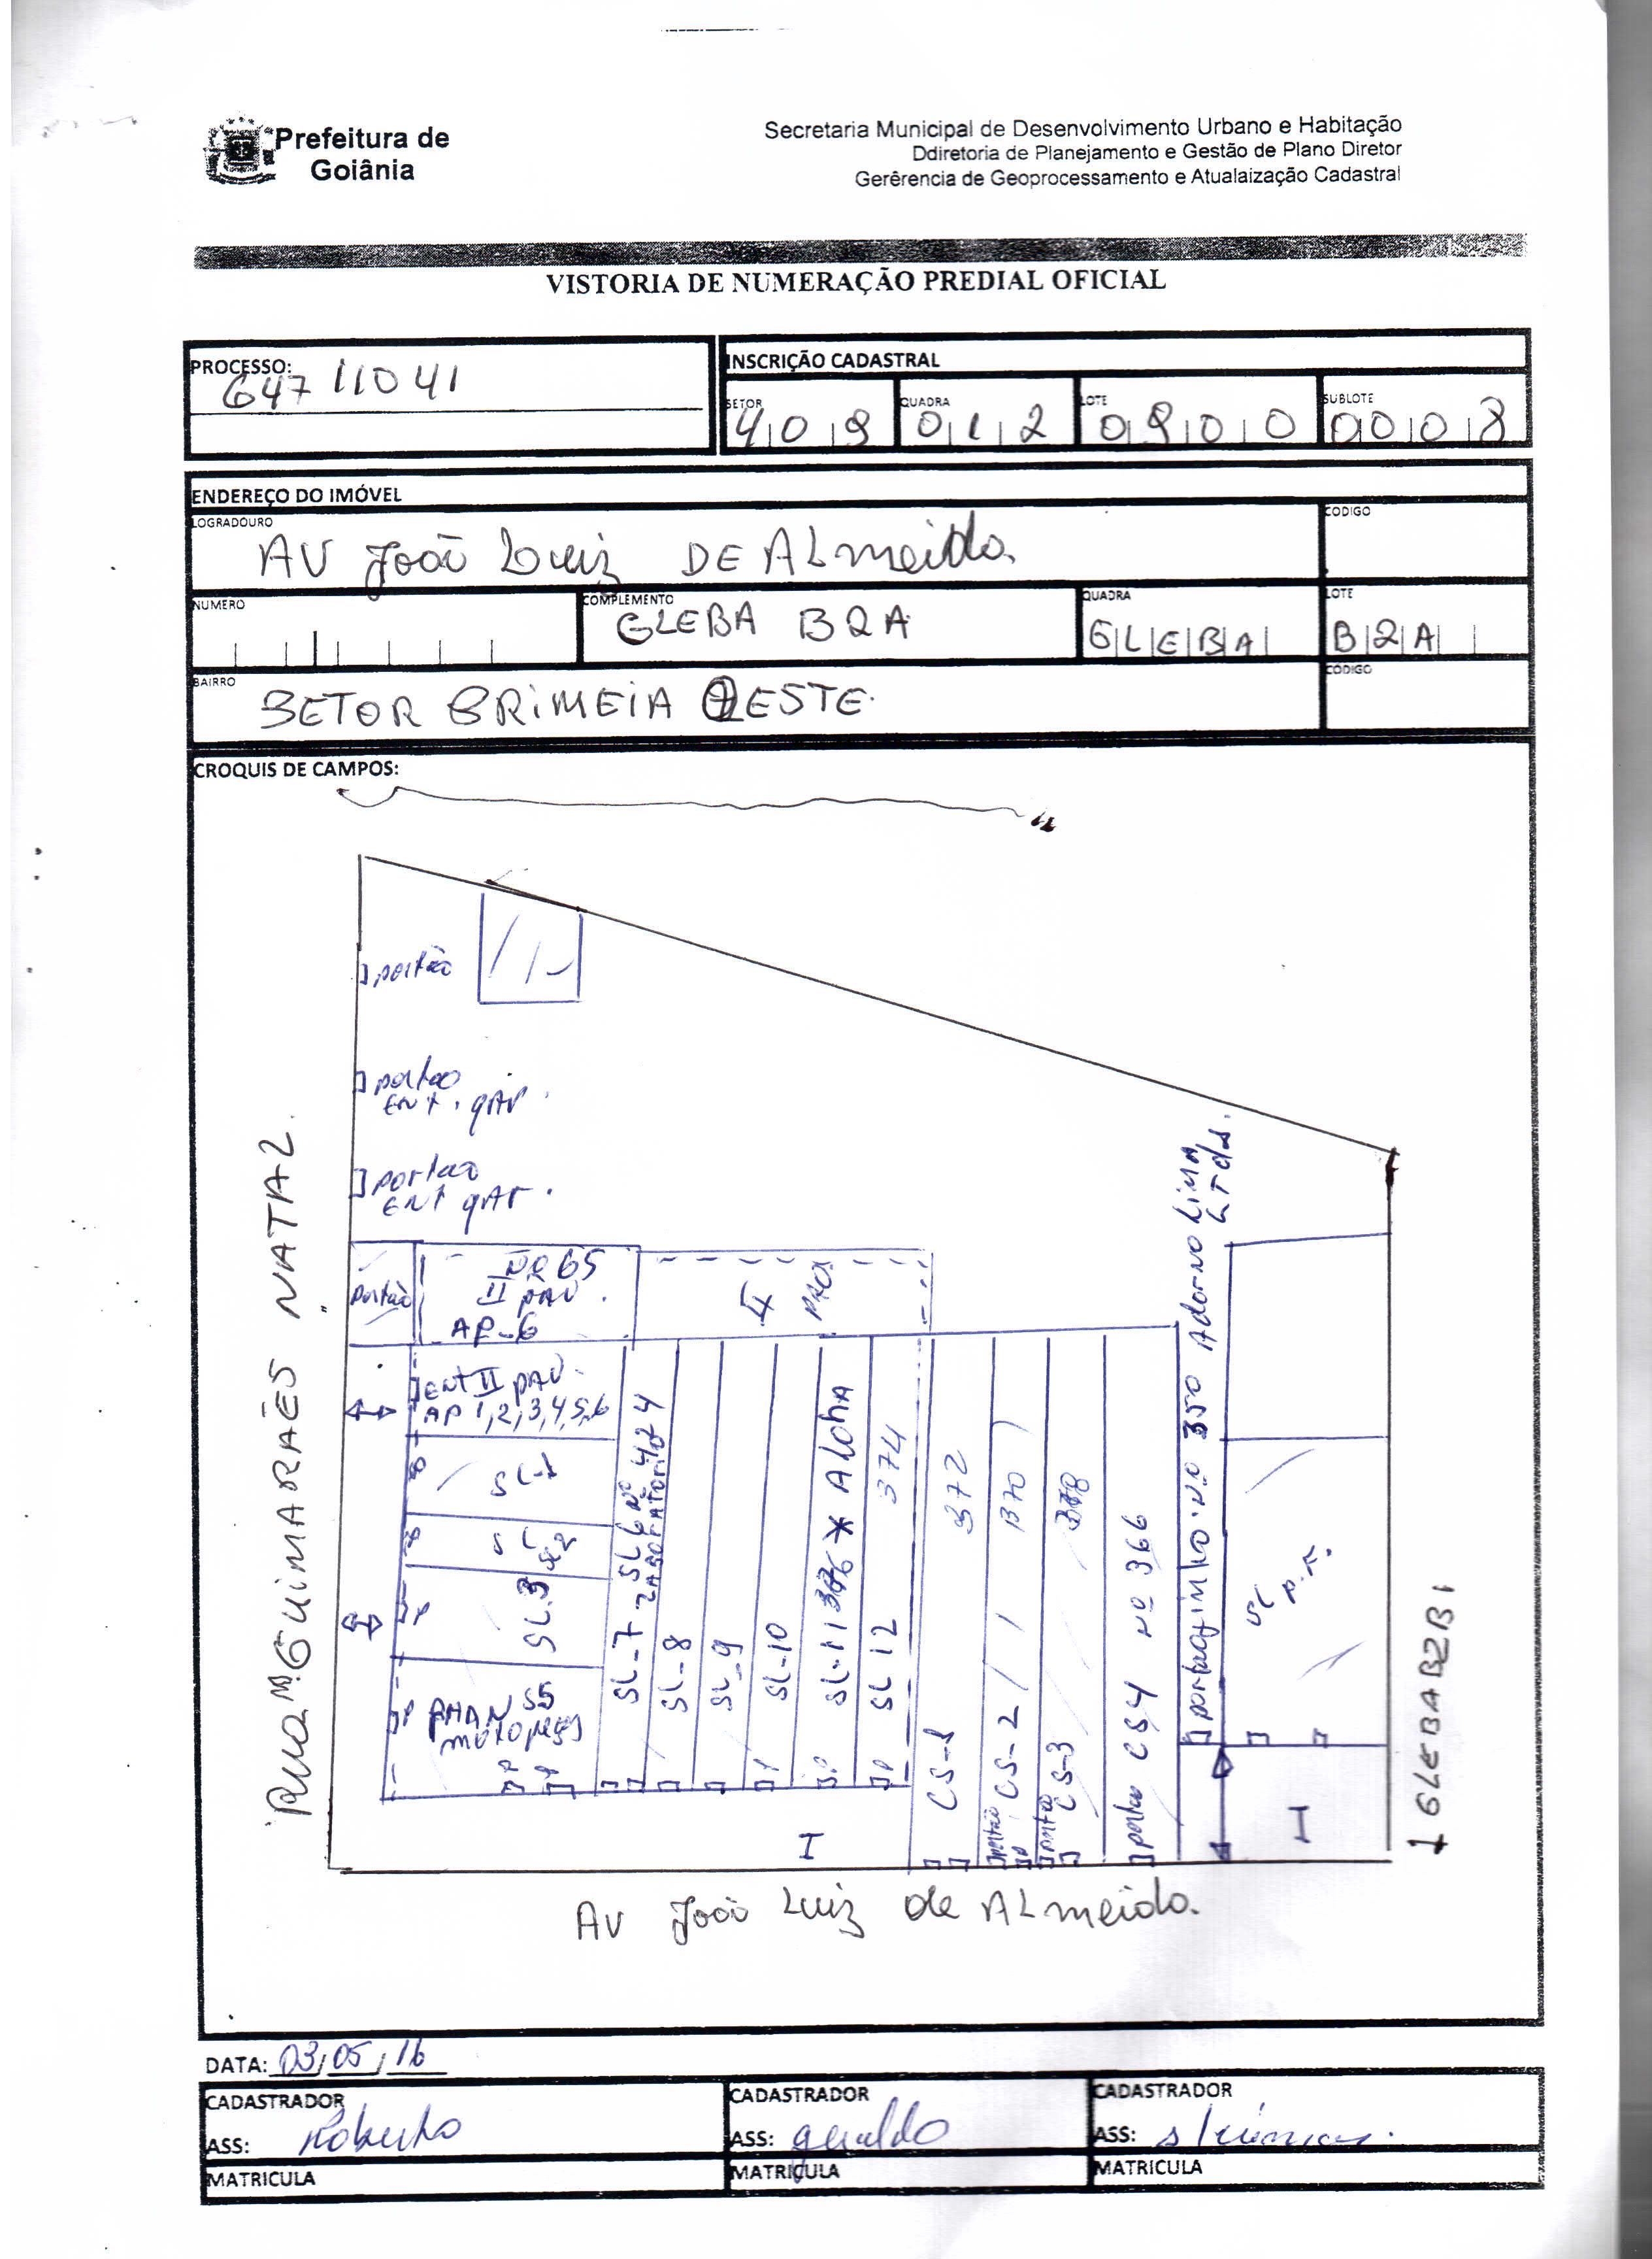 Prefeitura de
Goiânia
Secretaria Municipal de Desenvolvimento Urbano e Habitação
Ddiretoria de Planejamento e Gestão de Plano Diretor
Gerêrencia de Geoprocessamento e Atualaização Cadastral
VISTORIA DE NUMERAÇÃO PREDIAL OFICIAL
PROCESSO:
64711041
INSCRIÇÃO CADASTRAL
SETOR
409
QUADRA
012
LOTE
0900
SUBLOTE
0008
ENDEREÇO DO IMÓVEL
LOGRADOURO
AV João Luiz DE ALmeida
CODIGO
NUMERO
COMPLEMENTO
GLEBA B2A
QUADRA
GLEBA
LOTE
B2A
BAIRRO
SETOR CRIMEIA OESTE.
CÓDIGO
CROQUIS DE CAMPOS:
portão
portao
ENT. gAr.
portao
ENT gAr.
portão
Nº 65
II pAV.
AP-6
II PAV
ENT II pAV.
AP 1,2,3,4,5,6
SL-1
SL
SL.3
S5
motopeças
SL-7 SL 6 Nº 424
LABORATORIO
SL-8
SL-9
SL-10
SL-11 376 * ALohA
SL 12 374
CS-1 372
portão CS-2 370
portão CS-3
portão CS4 Nº 366
portaozinho. Nº 350 Adorno Lima
LTda.
SL
P.N.
I
I
Rua Mº GUIMARÃES NATAL
GLEBA B2B1
AV João Luiz de ALmeida.
DATA: 03/05/16
CADASTRADOR
ASS: Roberto
MATRICULA
CADASTRADOR
ASS: geraldo
MATRICULA
CADASTRADOR
ASS:
MATRICULA